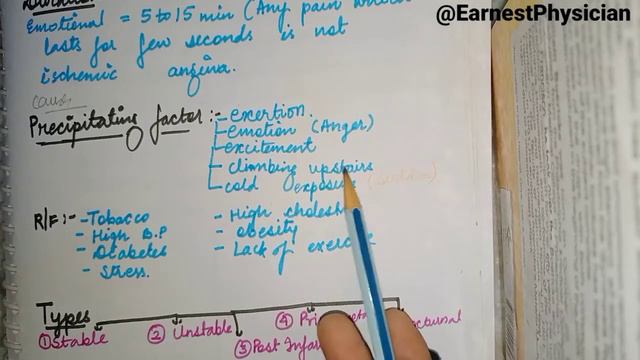 @EarnestPhysician
Emotional = 5 to 15 min (Any pain which
lasts for few seconds is not
ischemic angina.
causes
Precipitating factor :- exertion.
- emotion (Anger)
- excitement
- climbing upstairs
- cold exposure
R/F:- - Tobacco - High cholest
- High B.P - obesity
- Diabetes - Lack of exercise
- Stress.
Types
① Stable ② Unstable ④ Prin
③ Post Infar